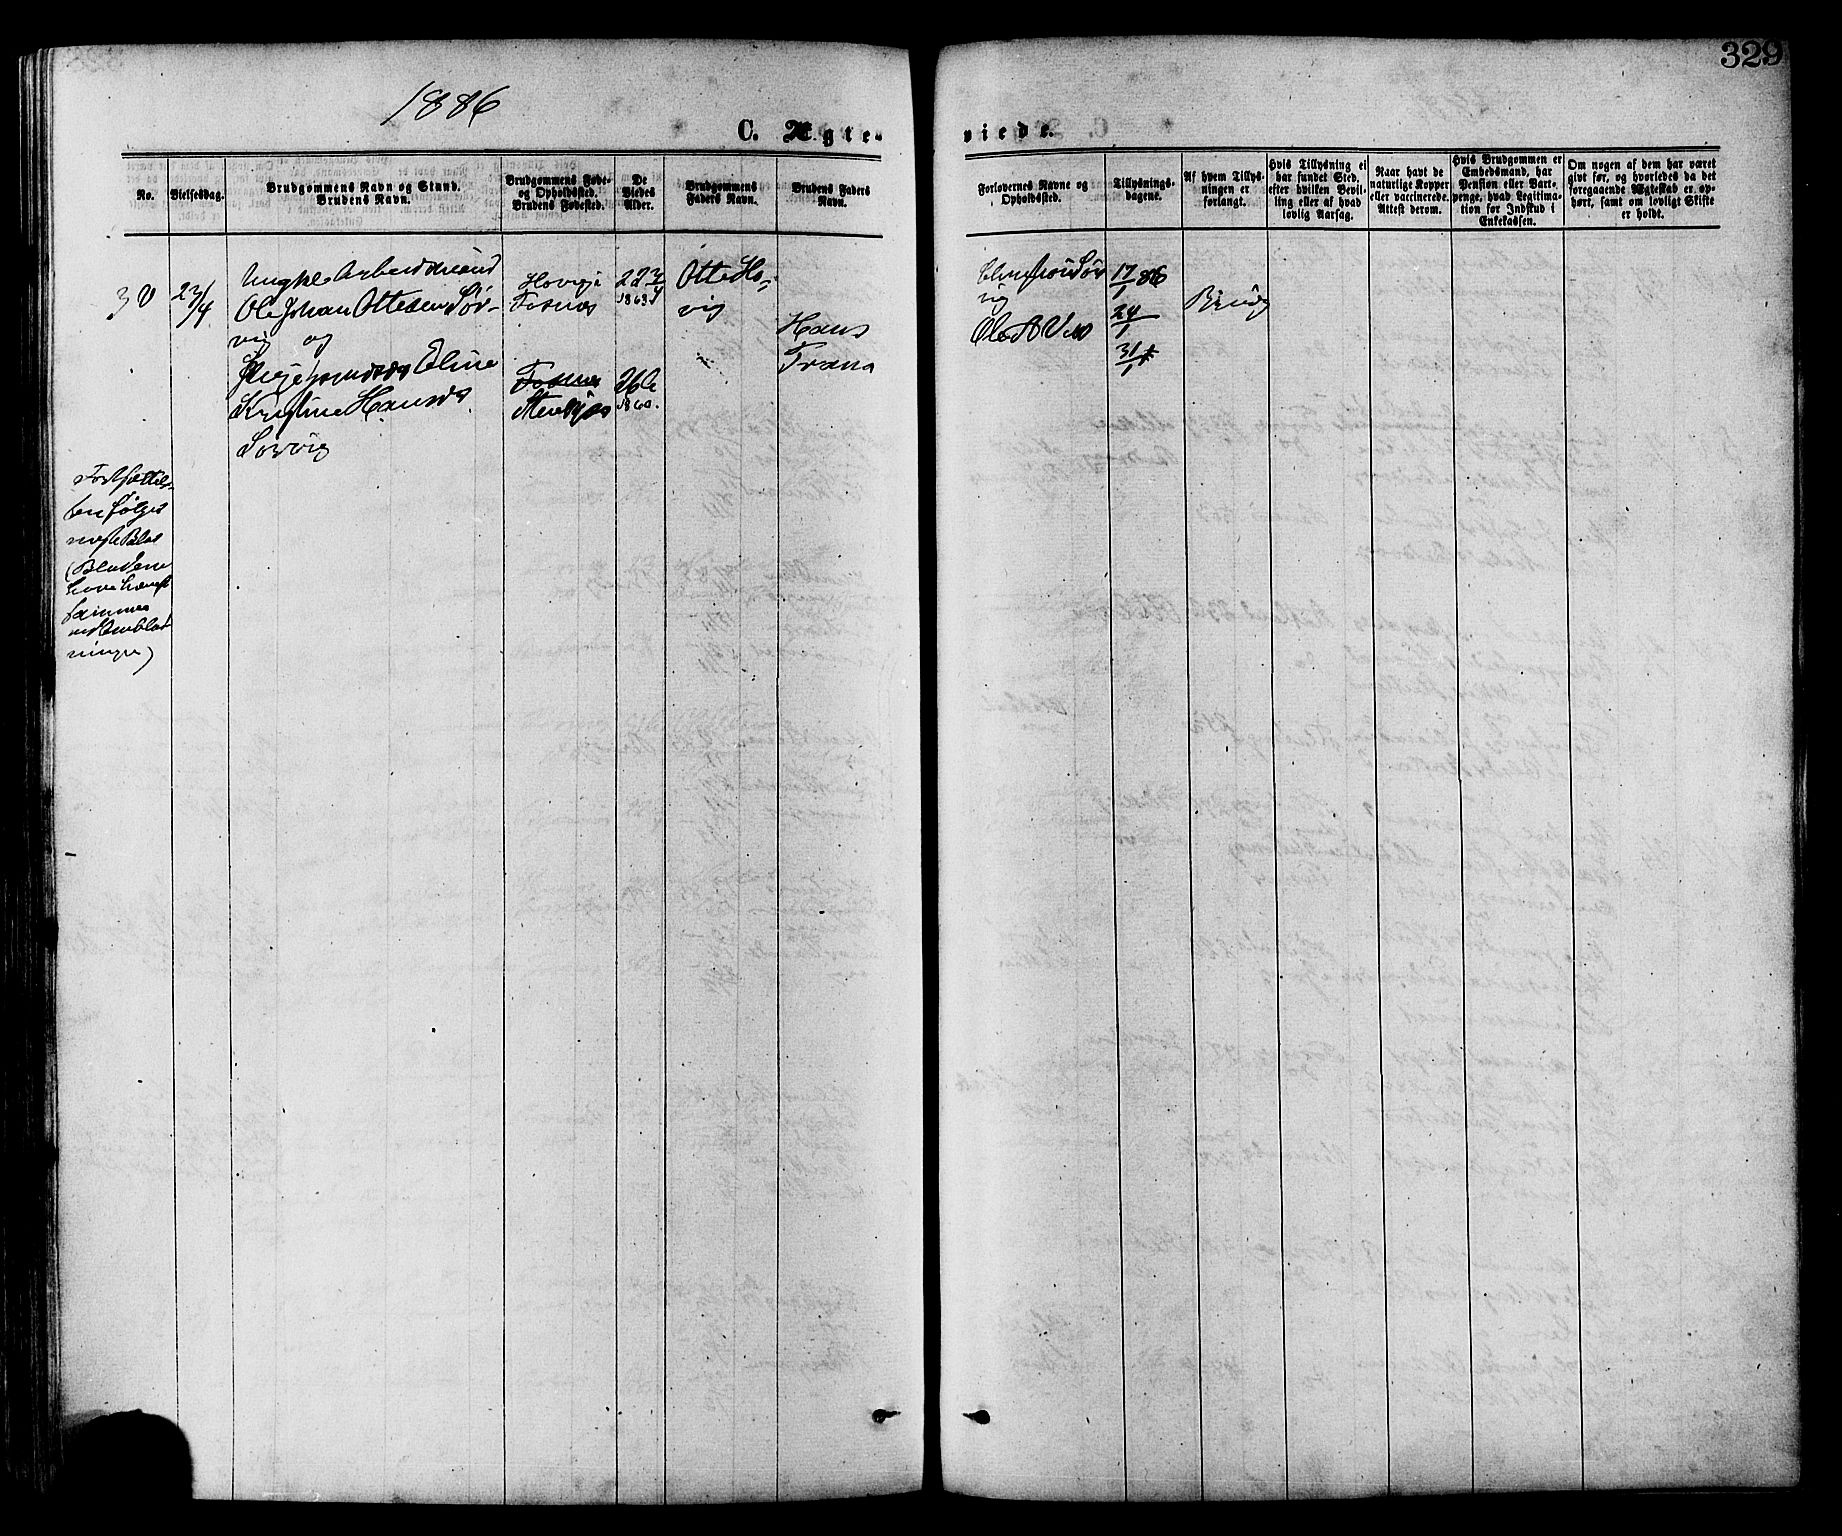 329
1886
C. Ægte-
viede.
No.
Vielsesdag.
Brudgommens Navn og Stand.
Brudens Navn.
Brudgommens Føde-
og Opholdssted.
Brudens Fødested.
De
Viedes
Alder.
Brudgommens
Faders Navn.
Brudens Faders
Navn.
Forlovernes Navne og
Opholdssted.
Tillysnings-
dagene.
Af hvem Tillys-
ningen er
forlangt.
Hvis Tillysning ei
har fundet Sted,
efter hvilken Bevil-
ling eller af hvad
lovlig Aarsag.
Naar havt de
naturlige Kopper
eller vaccinerede.
Attest derom.
Hvis Brudgommen er
Embedsmand, har
Pension eller Vart-
penge, hvad Legitima-
tion for Indskud i
Enkekassen.
Om nogen af dem har været
givt før, og hvorledes da det
foregaaende Ægteskab er op-
hørt, samt om lovligt Skifte
er holdt.
Ungkl Arbeidsmand
Ole Johan Ottesen Sør-
vig og
Pige Eline
Kristine Hansd
Sørvig
23/4
Hovig
Fosnæs
Fosnæs
Stenkjær
22
1863
26
1860.
Otte Ho-
vig
Hans
Trana
Sør
vig
Ole A
17/1 86
24/1
31/1
Fortsættel-
sen følger
næste Blad
(Bladene
have hængt
sammen
ved Omblad
ningen)